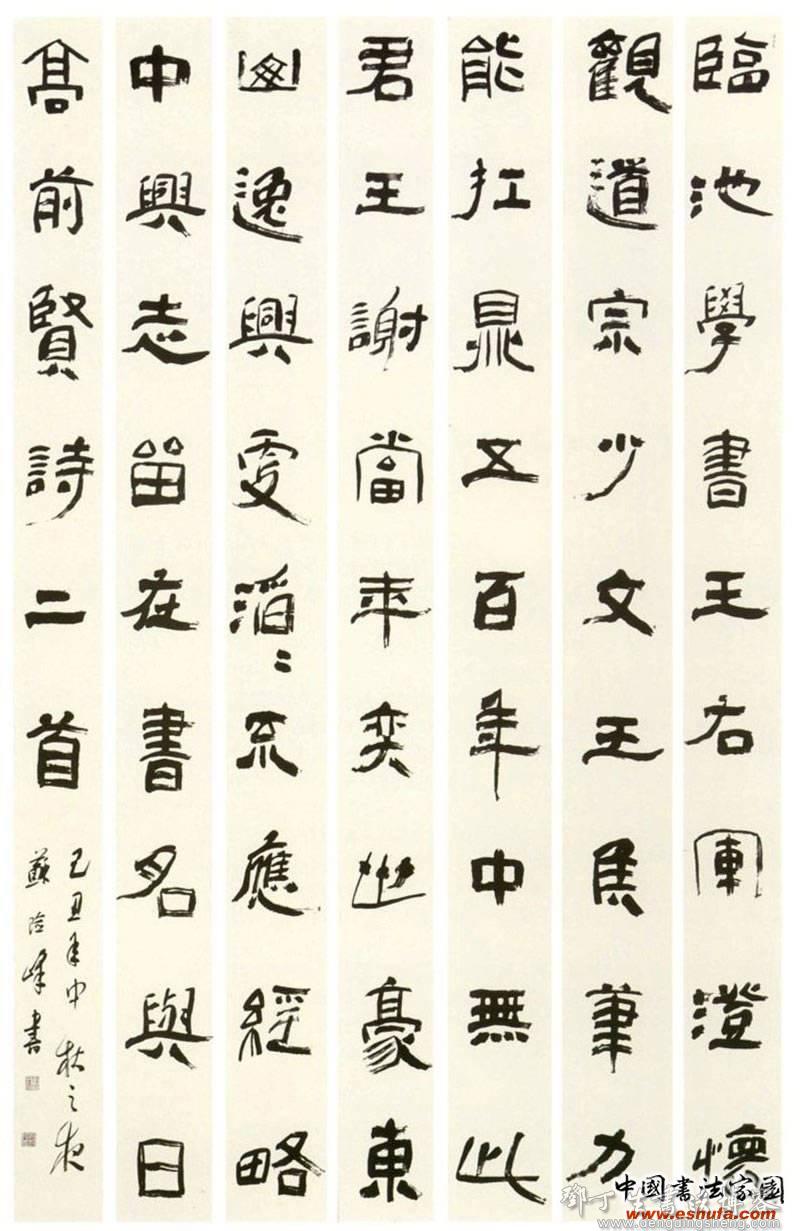 臨池學書王右軍澄懷
觀道宗少文王侯筆力
能扛鼎五百年中無此
君王謝當年奕世豪東
山逸興更滔〻不應經略
中興志留在書名與日
高前賢詩二首
己丑年中秋之夜
蘇峰書
中國書法家園
www.eshufa.com
鄧丁生書法博客
www.dengdingsheng.com